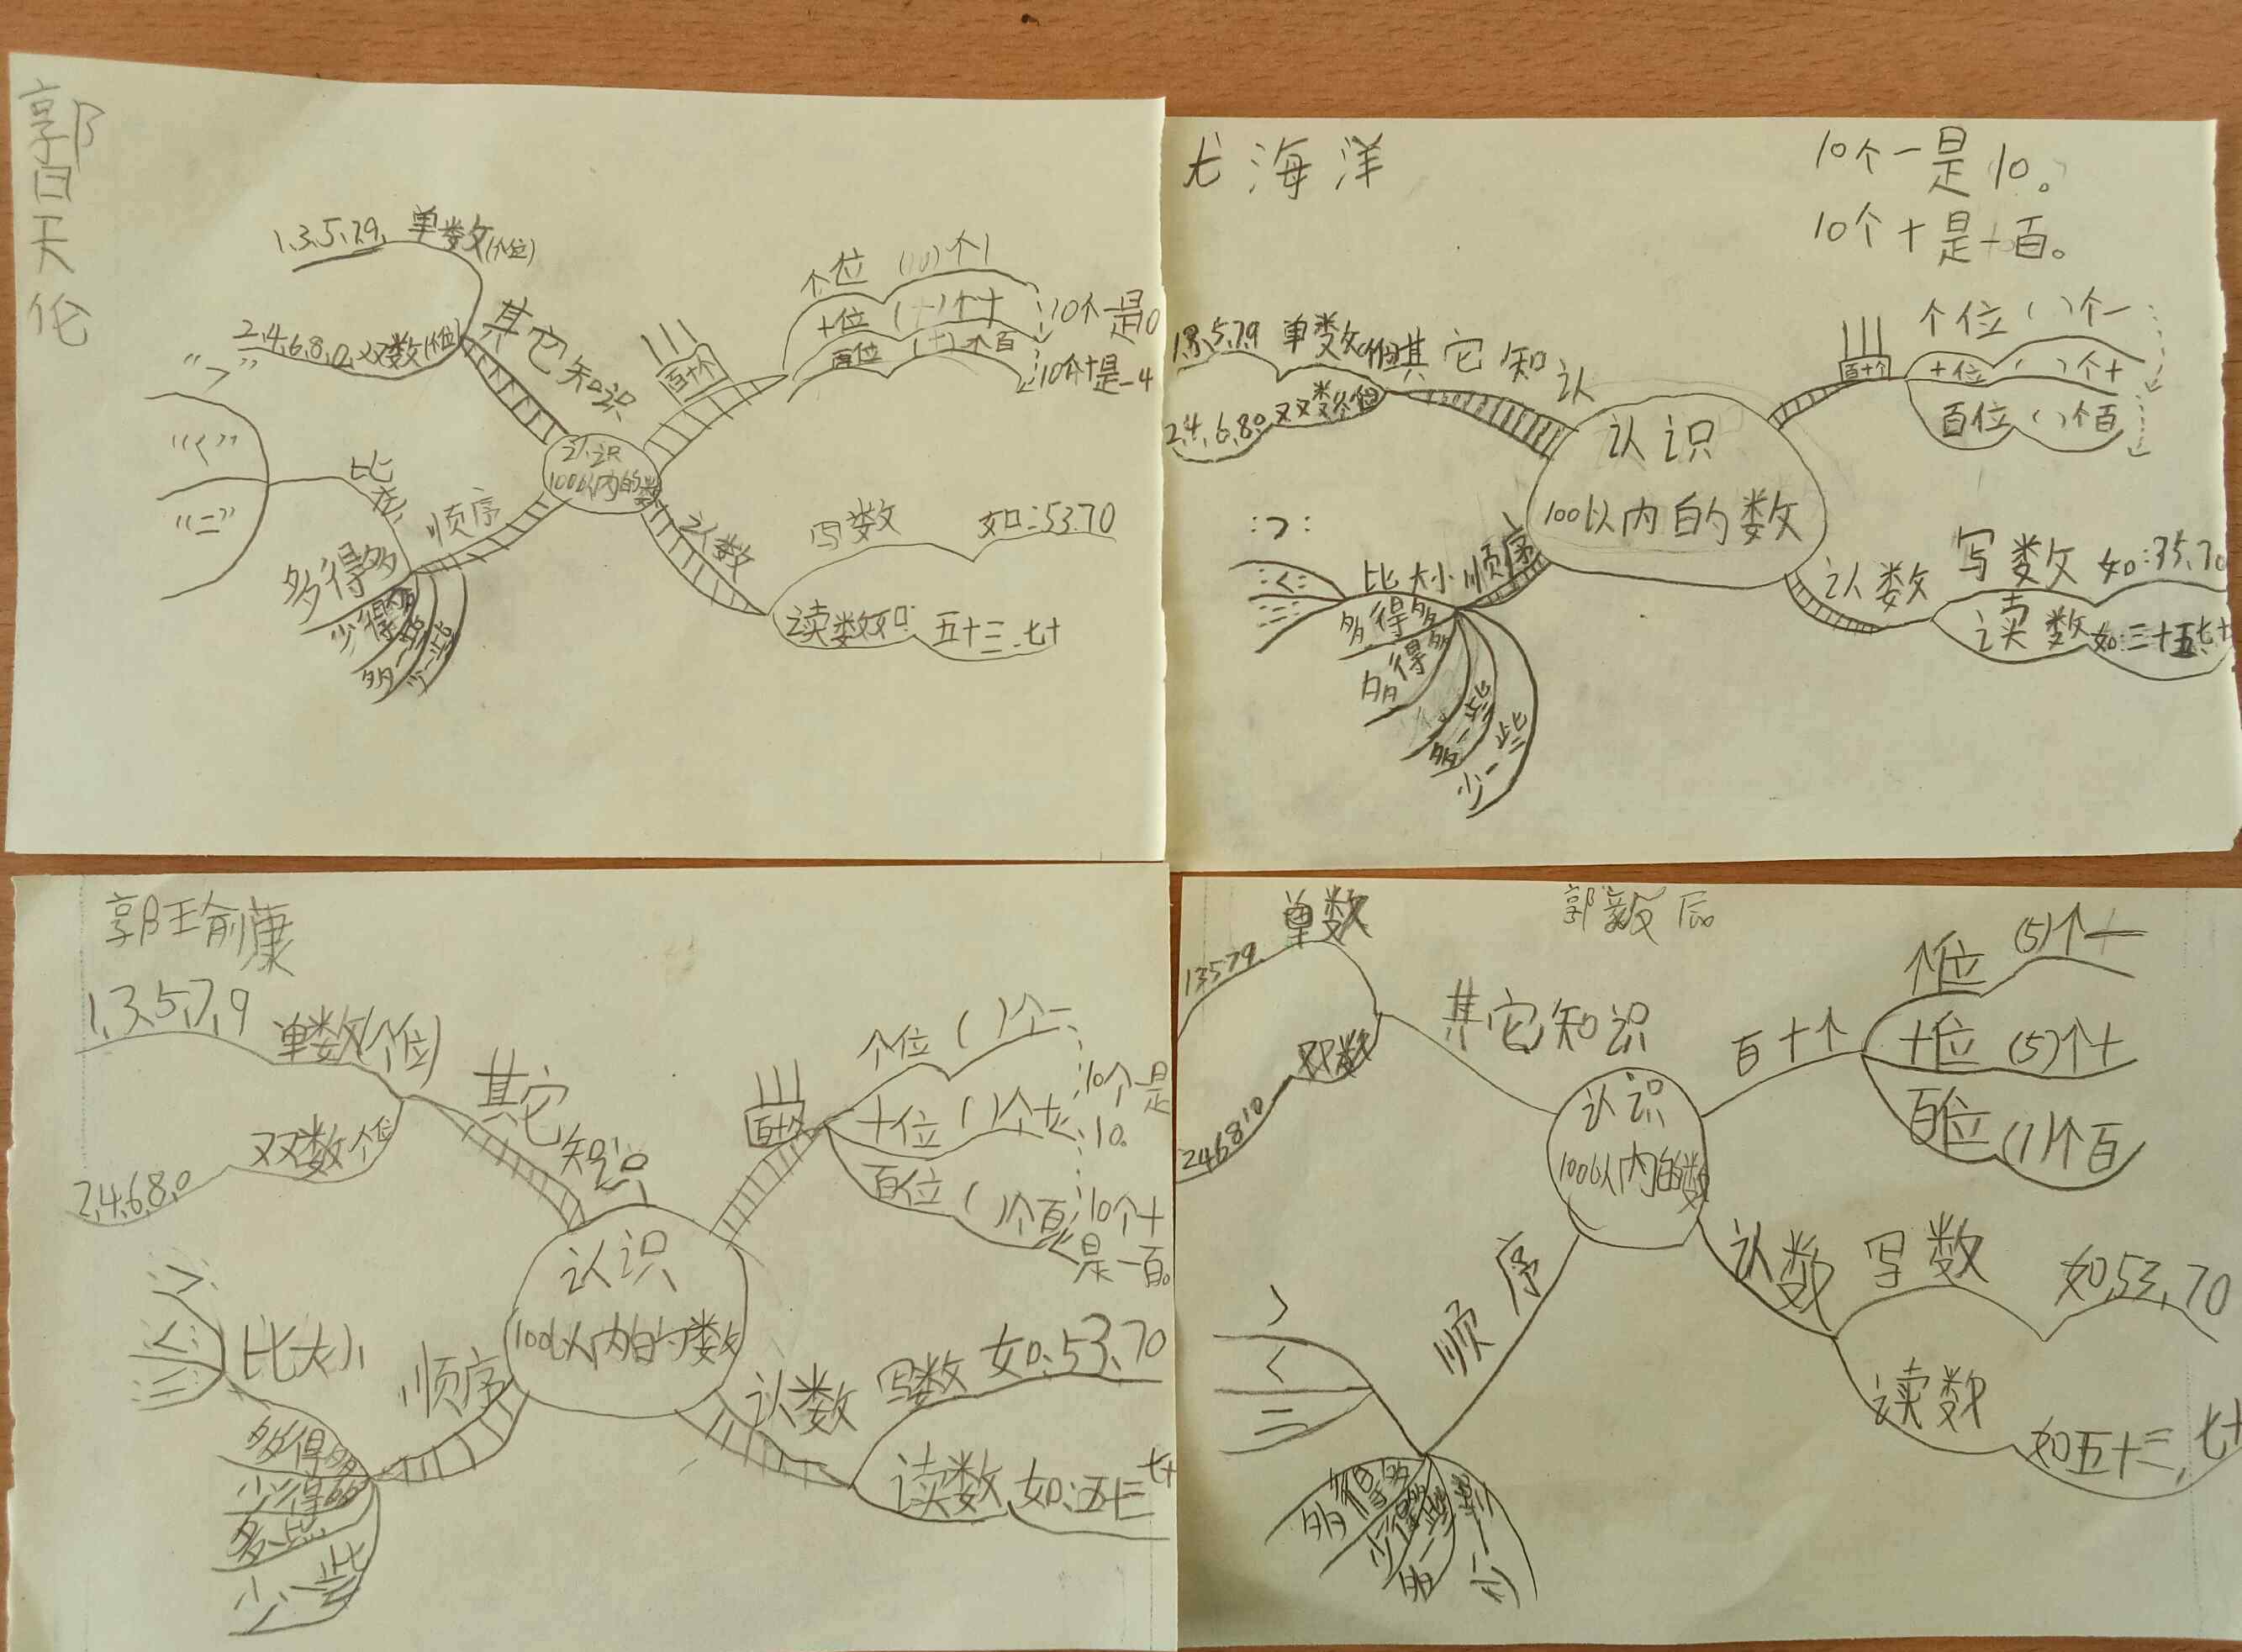 郭天伦
1、3、5、7、9、 单数(个位)
2、4、6、8、0、双数(个位)
其它知识
百十个
个位 (10)个1
十位 ( )个十
百位 ( )个百
10个一是10
10个十是
认识
100以内的数
">"
"<"
"="
比大
顺序
多得多
少得多
多一些
少一些
认数
写数 如:53.70
读数如: 五十三.七十
尤海洋
10个一是10。
10个十是一百。
1.3.5.7.9 单数(个位)
2.4.6.8.0 双数个位
其它知认
百十个
个位 ( )个一
十位 ( )个十
百位 ( )个百
认识
100以内的数
:>:
:<:
比大小
顺序
多得多
多得多
多一些
少一些
认数
写数 如:35.70
读数 如:三十五七十
郭王俞康
1、3、5、7、9 单数(个位)
双数个位
2、4、6、8、0
其它知识
百十个
个位 ( )个一
十位 ( )个十
百位 ( )个百
10个一是10。
10个十是一百。
认识
100以内的数
>
<
=
比大小
顺序
多得多
少得多
多一些
少一些
认数
写数 如:53、70
读数 如:五十三 七十
郭毅辰
单数
1 3 5 7 9
双数
2 4 6 8 10
其它知识
百十个
个位 (5)个一
十位 (5)个十
百位 (1)个百
认识
100以内的数
顺序
>
<
=
多得多
少得多
多一些
少一些
认数
写数 如,53,70
读数 如五十三,七十